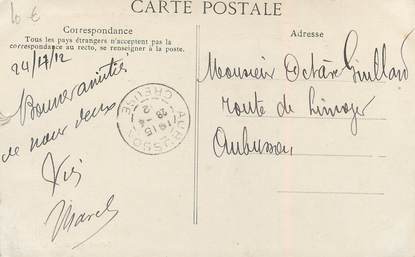 10 €
CARTE POSTALE
Correspondance
Tous les pays étrangers n'acceptent pas la
correspondance au recto, se renseigner à la poste.
Bonnes amitiés
de nous deux
Marcel
AUBUSSON
CREUSE
Adresse
Monsieur Octave Guillard
route de Limoges
Aubusson